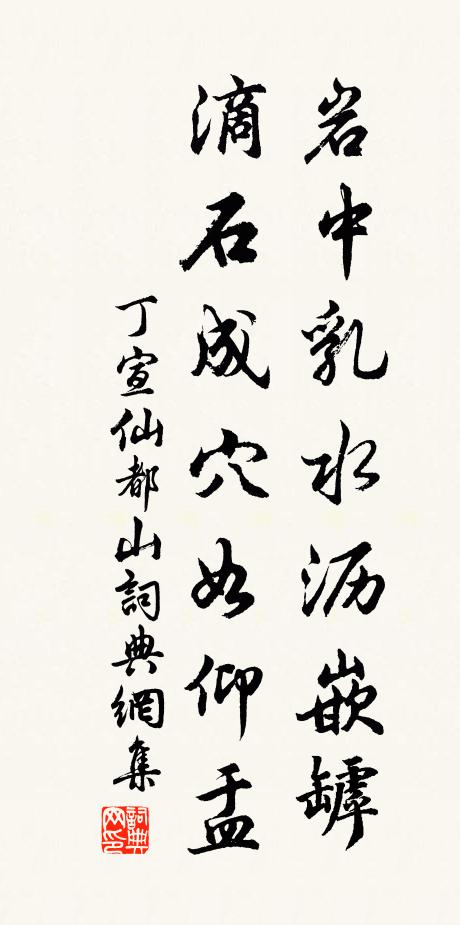 岩中乳水沥嵌罅
滴石成穴如仰盂
丁宣仙都山詞典網集
詞典網印